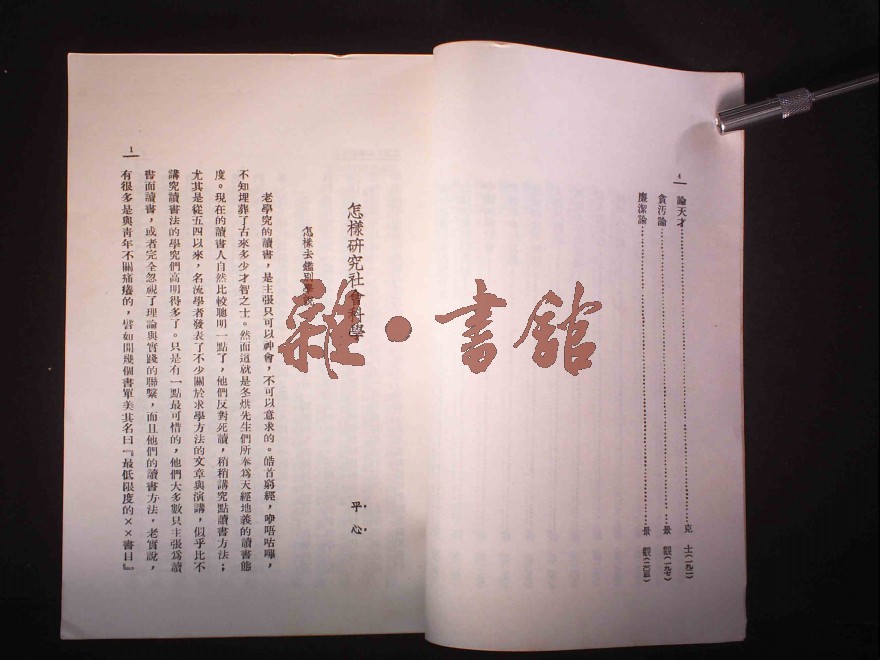 4
論天才……克 士(一九一)
貪污論……景 觀(一九七)
廉潔論……景 觀(二〇三)
怎樣研究社會科學
平 心
怎樣去鑑別學說
老學究的讀書，是主張只可以神會，不可以意求的。皓首窮經，咿唔咕嗶，
不知埋葬了古來多少才智之士。然而這就是冬烘先生們所奉爲天經地義的讀書態
度。現在的讀書人自然比較聰明一點了，他們反對死讀，稍稍講究點讀書方法；
尤其是從五四以來，名流學者發表了不少關於求學方法的文章與演講，似乎比不
講究讀書法的學究們高明得多了。只是有一點最可惜的，他們大多數只主張爲讀
書而讀書，或者完全忽視了理論與實踐的聯繫，而且他們的讀書方法，老實說，
有很多是與靑年不關痛癢的，譬如開幾個書單美其名曰『最低限度的××書目』
1
雜·書館